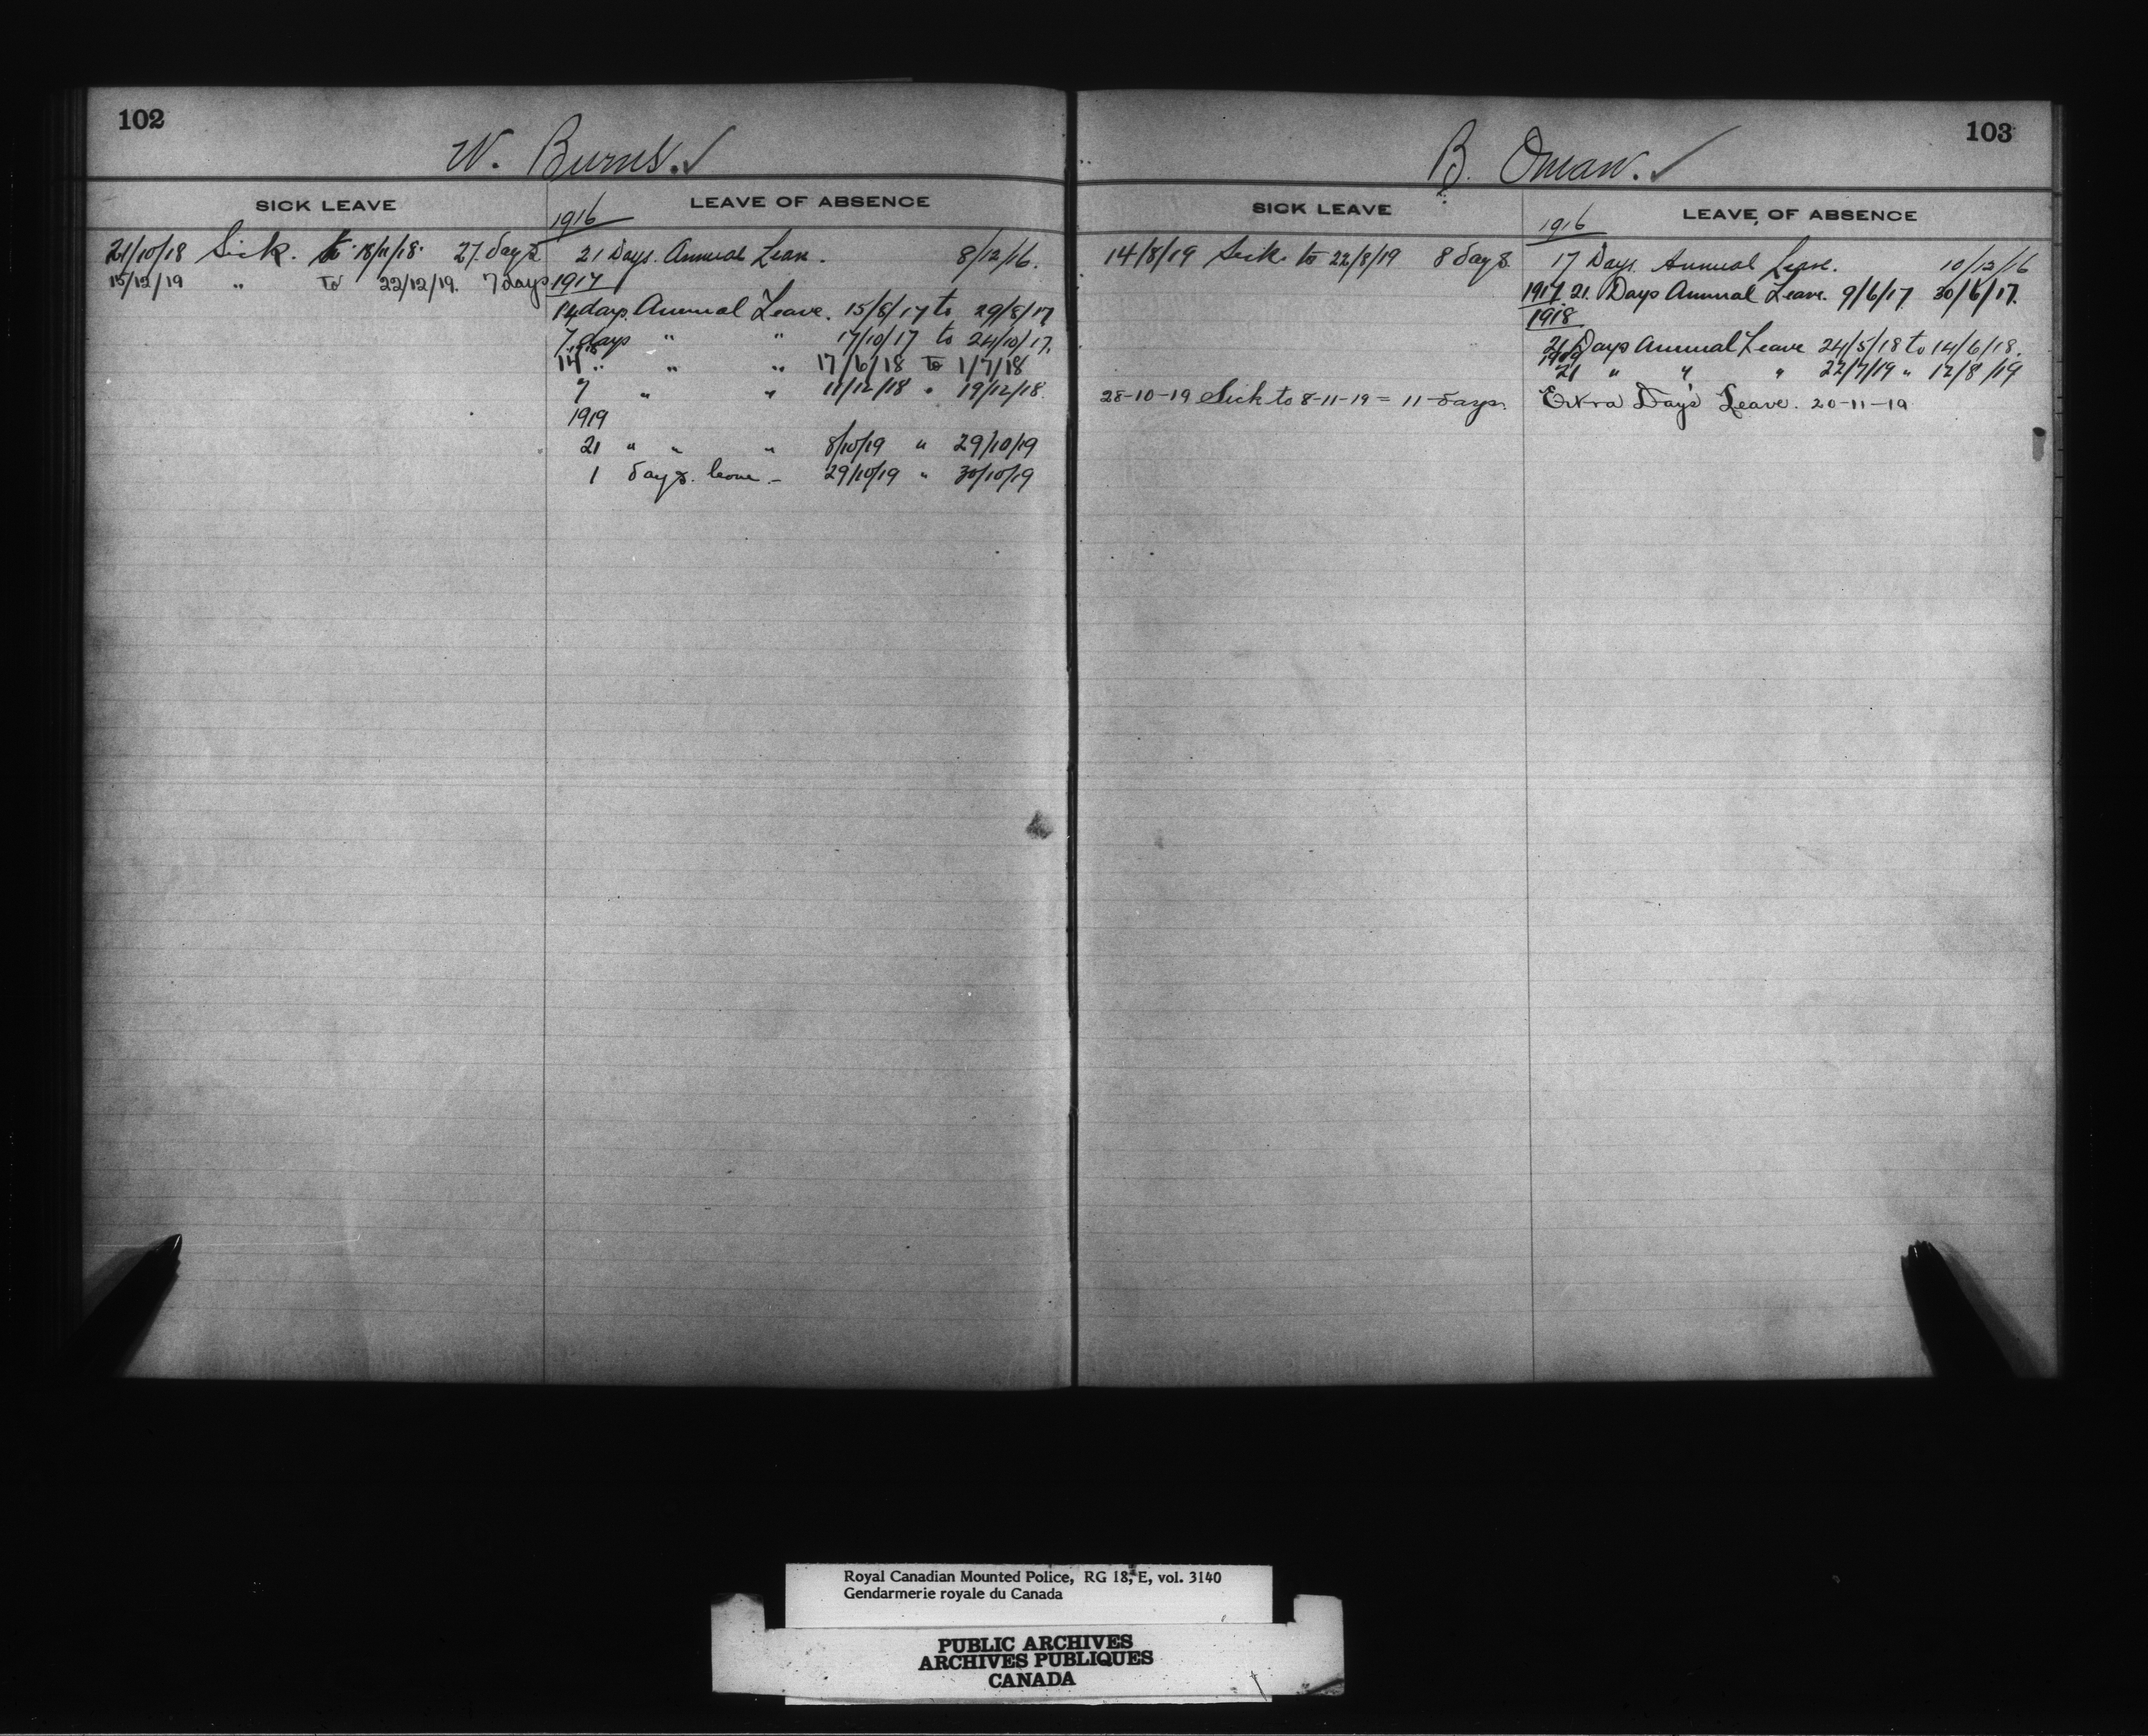 102
W. Burns. ✓
SICK LEAVE
21/10/18 Sick. to 18/11/18. 27 days
15/12/19 " To 22/12/19. 7 days
LEAVE OF ABSENCE
1916
21 Days. Annual Leave. 8/12/16.
1917
14 days. Annual Leave. 15/8/17 to 29/8/17
7 days " " 17/10/17 to 24/10/17.
1918
14 " " " 17/6/18 To 1/7/18
7 " " 11/12/18 " 19/12/18.
1919
21 " " " 8/10/19 " 29/10/19
1 days. leave - 29/10/19 " 30/10/19
103
B. Oman. ✓
SICK LEAVE
14/8/19 Sick to 22/8/19 8 days.
28-10-19 Sick to 8-11-19 = 11 days.
LEAVE OF ABSENCE
1916
17 Days Annual Leave. 10/12/16
1917. 21. Days Annual Leave. 9/6/17 30/6/17.
1918
21 Days Annual Leave 24/5/18 to 14/6/18.
1919
21 " " " 22/7/19 " 12/8/19
Extra Day's Leave. 20-11-19
Royal Canadian Mounted Police, RG 18, E, vol. 3140
Gendarmerie royale du Canada
PUBLIC ARCHIVES
ARCHIVES PUBLIQUES
CANADA